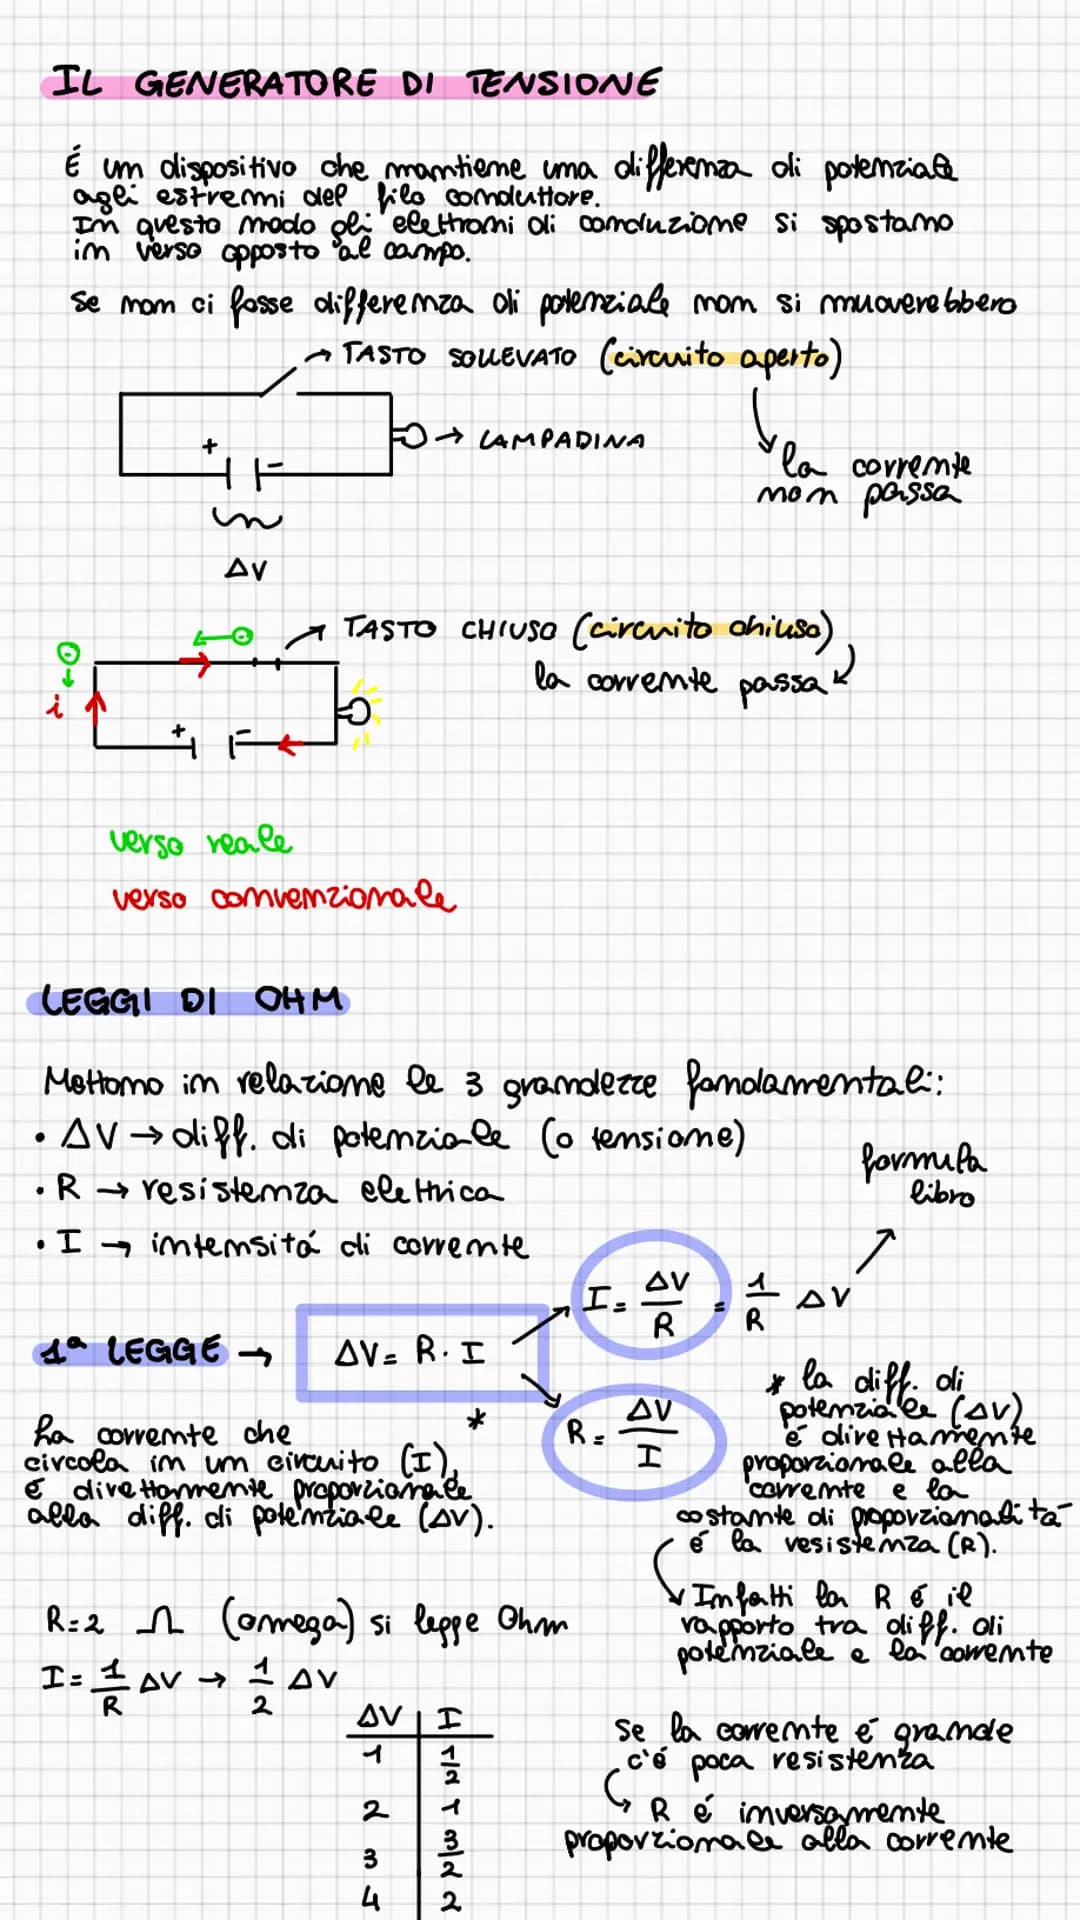 IL GENERATORE DI TENSIONE
É un dispositivo che mantiene una differenza di potenziale
agli estremi del filo conduttore.
In questo modo gli elettroni di conduzione si spostano
in verso opposto al campo.
Se non ci fosse differenza di potenziale non si muoverebbero
→ TASTO SOLLEVATO (circuito aperto)
+ - → LAMPADINA
la corrente
non passa
ΔV
→ TASTO CHIUSO (circuito chiuso)
la corrente passa
i
+ -
verso reale
verso convenzionale
LEGGI DI OHM
Mettono in relazione le 3 grandezze fondamentali:
• ΔV → diff. di potenziale (o tensione)
• R → resistenza elettrica
• I → intensitá di corrente
formula
libro
I = ΔV/R = 1/R ΔV
1ª LEGGE → ΔV = R · I
*
R = ΔV/I
La corrente che
circola in un circuito (I),
é direttamente proporzionale
alla diff. di potenziale (ΔV).
* la diff. di
potenziale (ΔV)
é direttamente
proporzionale alla
corrente e la
costante di proporzionalitá
é la resistenza (R).
Infatti la R é il
rapporto tra diff. di
potenziale e la corrente
R = 2 Ω (omega) si legge Ohm
I = 1/R ΔV → 1/2 ΔV
ΔV I
1 1/2
2 1
3 3/2
4 2
Se la corrente é grande
c'é poca resistenza
R é inversamente
proporzionale alla corrente